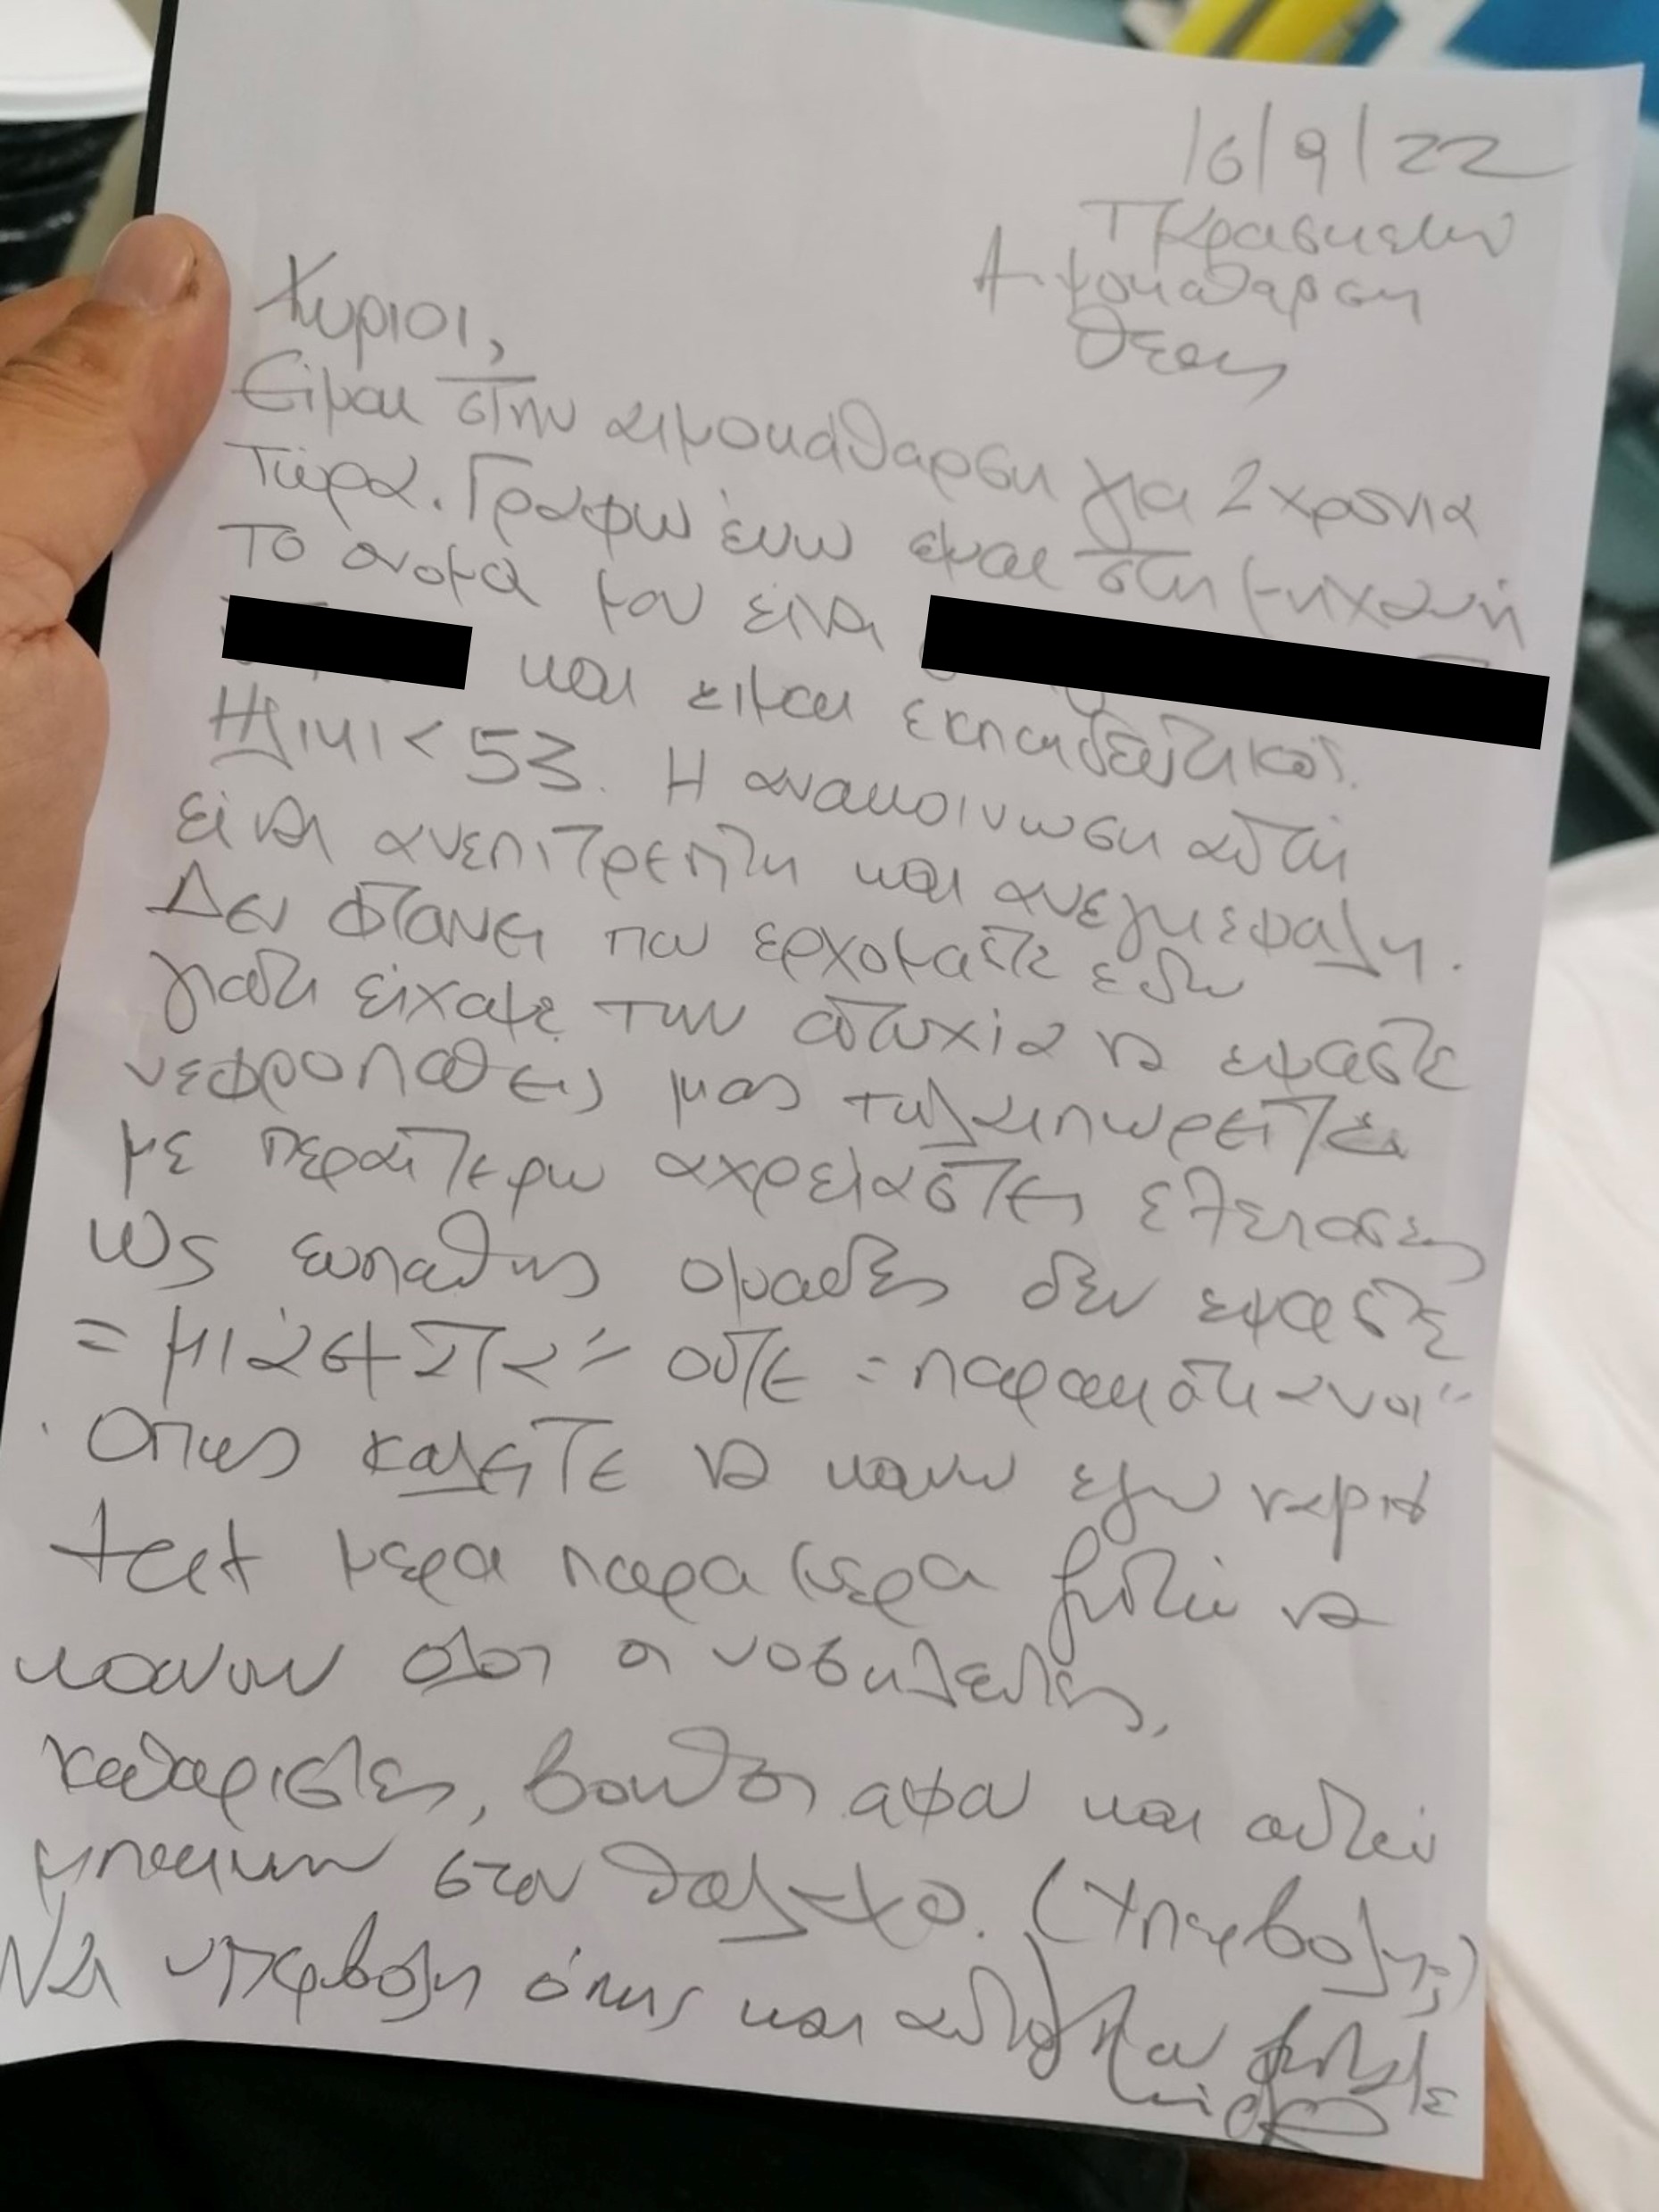 16/9/22
Κυριοι,
Είμαι στην αιμοκάθαρση για 2 χρονια
τώρα. Γραφω ένω ειμαι στη μηχανή
Το ονομα μου είναι
και ειμαι εκπαιδευτικός.
Ηλικια 53. Η ανακοινωση αυτή
είναι ανεπιτρεπτη και ανεγκεφαλη.
Δεν φτανει που ερχομαστε εδω
γιατι είχαμε την ατυχία να ειμαστε
νεφροπαθεις μας ταλαιπωρειτε
με περαιτερω αχρείαστες
Ως ευπαθης ομαδες δεν ειμαστε
"μιάσματα" ουτε "παρακατιανοι"
Οπως καλειτε να κανω εγω
test μερα παρα μερα να
κανουν ολοι οι νοσηλευτες,
καθαριστες, βοηθοι αφου και αυτοι
μπαινουν στον θαλαμο. (Υπερβολη;)
Ναι υπερβολη όπως και αυτο που